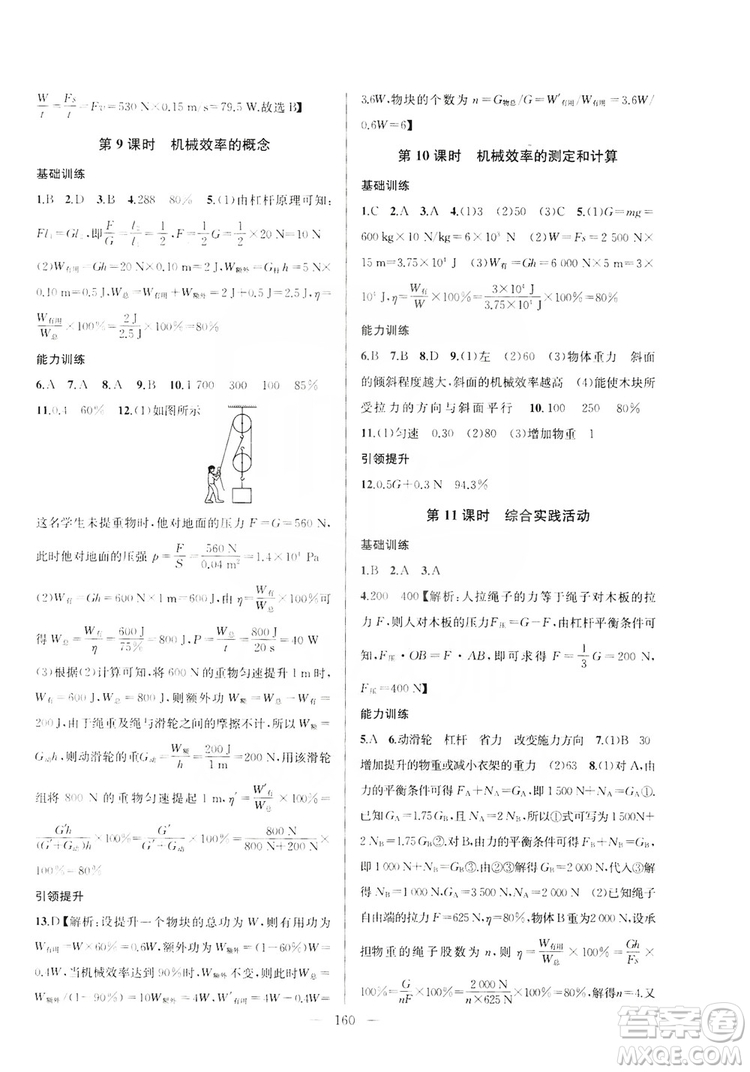 W/t = Fs/t = Fv = 530 N×0.15 m/s = 79.5 W.故选 B】
第 9 课时　机械效率的概念
基础训练
1.B　2.D　3.B　4.288　80%　5.(1)由杠杆原理可知:
(2)W有用 = Gh = 20 N×0.10 m = 2 J, W额外 = G杆 h = 5 N×
0.10 m = 0.5 J, W总 = W有用 + W额外 = 2 J + 0.5 J = 2.5 J, η =
W有用/W总×100% = 2 J/2.5 J×100% = 80%
能力训练
6.A　7.A　8.A　9.A　10.1 700　300　100
11.0.4　60%　12.(1)如图所示
这名学生未提重物时,他对地面的压力 F = G = 560 N,
此时他对地面的压强 p = F/S = 560 N/0.04 m² = 1.4×10⁴ Pa
(2)W有 = Gh = 600 N×1 m = 600 J, 由 η = W有/W总 可
得 W总 = W有/η = 600 J/75% = 800 J, P = W总/t = 800 J/20 s = 40 W
(3)根据(2)计算可知,将 600 N 的重物匀速提升 1 m 时,
W有 = 600 J, W总 = 800 J, 则额外功 W额 = W总 - W有 =
200 J.由于绳重及绳与滑轮之间的摩擦不计,则 W额 =
G动h,动滑轮的重G动 = W额/h = 200 J/1 m = 200 N,用该滑轮
组将 800 N 的重物匀速提起 1 m 时, η′ = W′有/W′总×100% =
G′h/(G′+G动)h×100% = G′/(G′+G动)×100% = 800 N/(800 N+200 N)×
100% = 80%
引领提升
13.D【解析:设提升一个物块的总功为 W, 则有用功
W有用 = W×60% = 0.6W,额外功为 W额外 = W - 0.6W =
0.4W,当机械效率达到 90%时,额外功不变, 则 W总 =
W额外/(1-90%) = 4W, W′有用 = W总 - W额外 = 4W - 0.4W =
3.6W,物块的个数为 n = G物总/G = W′有用/W有用 = 3.6W/
0.6W = 6】
第 10 课时　机械效率的测定和计算
基础训练
1.C　2.A　3.A　4.(1)3　(2)50　(3)C　5.(1)G = mg =
600 kg×10 N/kg = 6 000 N　(2)W = Fs = 2 500 N×
15 m = 3.75×10⁴ J　(3)W有 = Gh = 6 000 N×5 m = 3×
10⁴ J, η = W有/W×100% = 3×10⁴ J/3.75×10⁴ J×100% = 80%
能力训练
6.B　7.B　8.D　9.(1)左　(2)60　(3)物体重力　斜面
的倾斜程度越大,斜面的机械效率越高　(4)能使木块所
受拉力的方向与斜面平行　10.100　250　80%
11.(1)匀速　0.30　(2)80%　(3)增加物重　1
引领提升
12.0.5G+0.3 N　94.3%
第 11 课时　综合实践活动
基础训练
1.B　2.A　3.A
4.200　400【解析:人拉绳子的力等于绳子对木板的拉
力 F,则人对木板的压力 F压 = G - F,由杠杆平衡条件可
知:F压·AO = F·BO, 可解得 F = 1/3G = 200 N,
F压 = 400 N】
能力训练
5.A　6.动滑轮　杠杆　省力　改变施力方向　7.(1)B　30
增加提升的物重或减小衣架的重力　(2)63　8.(1)对 A,由
力的平衡条件可得 FA + NA = GA①,对 B,由力的平衡条
件可得 FB + NB = GB②,由杠杆平衡条件可得 FA = 2FB,
已知 GA = 1.75GB,代入①可得 1 500N + NA = 1.75GB,且
2NB = 1.75GB②.对 B,由力的平衡条件可得 FB + NB =
GB,即 1 000 N + NB = GB③,由②③得 GB = 2 000 N,代入③
得 1 000 N + NB = GB, GA = 3 500 N　(2)已知绳子
自由端的拉力 F = 625 N, η = 80%, GB = 2 000 N.设承
担物重的绳子股数为 n,则 η = W有用/W总×100% = Gh/Fs×
100% = G/nF×100% = 2 000 N/(n×625 N)×100%, 解得 n = 4.又
160
答案圈
MXQE.COM